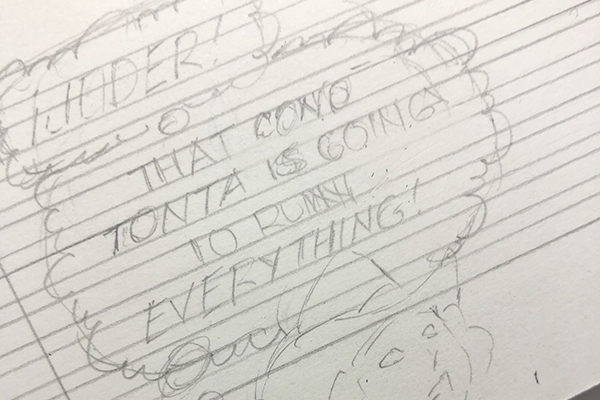 THAT COÑO
TONTA IS GOING
TO RUIN
EVERYTHING!